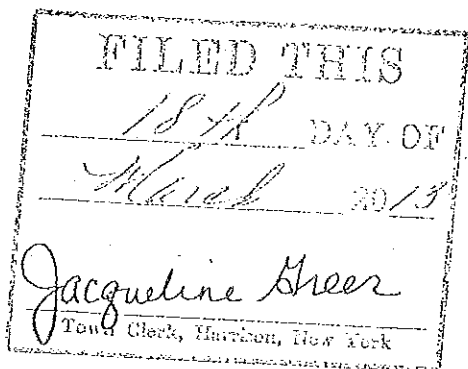 FILED THIS
18th DAY OF
March 2013
Jacqueline Greer
Town Clerk, Harrison, New York